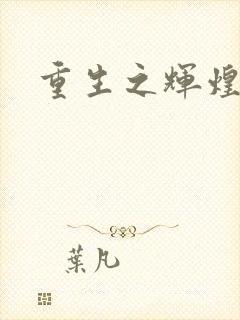 重生之輝煌
葉凡